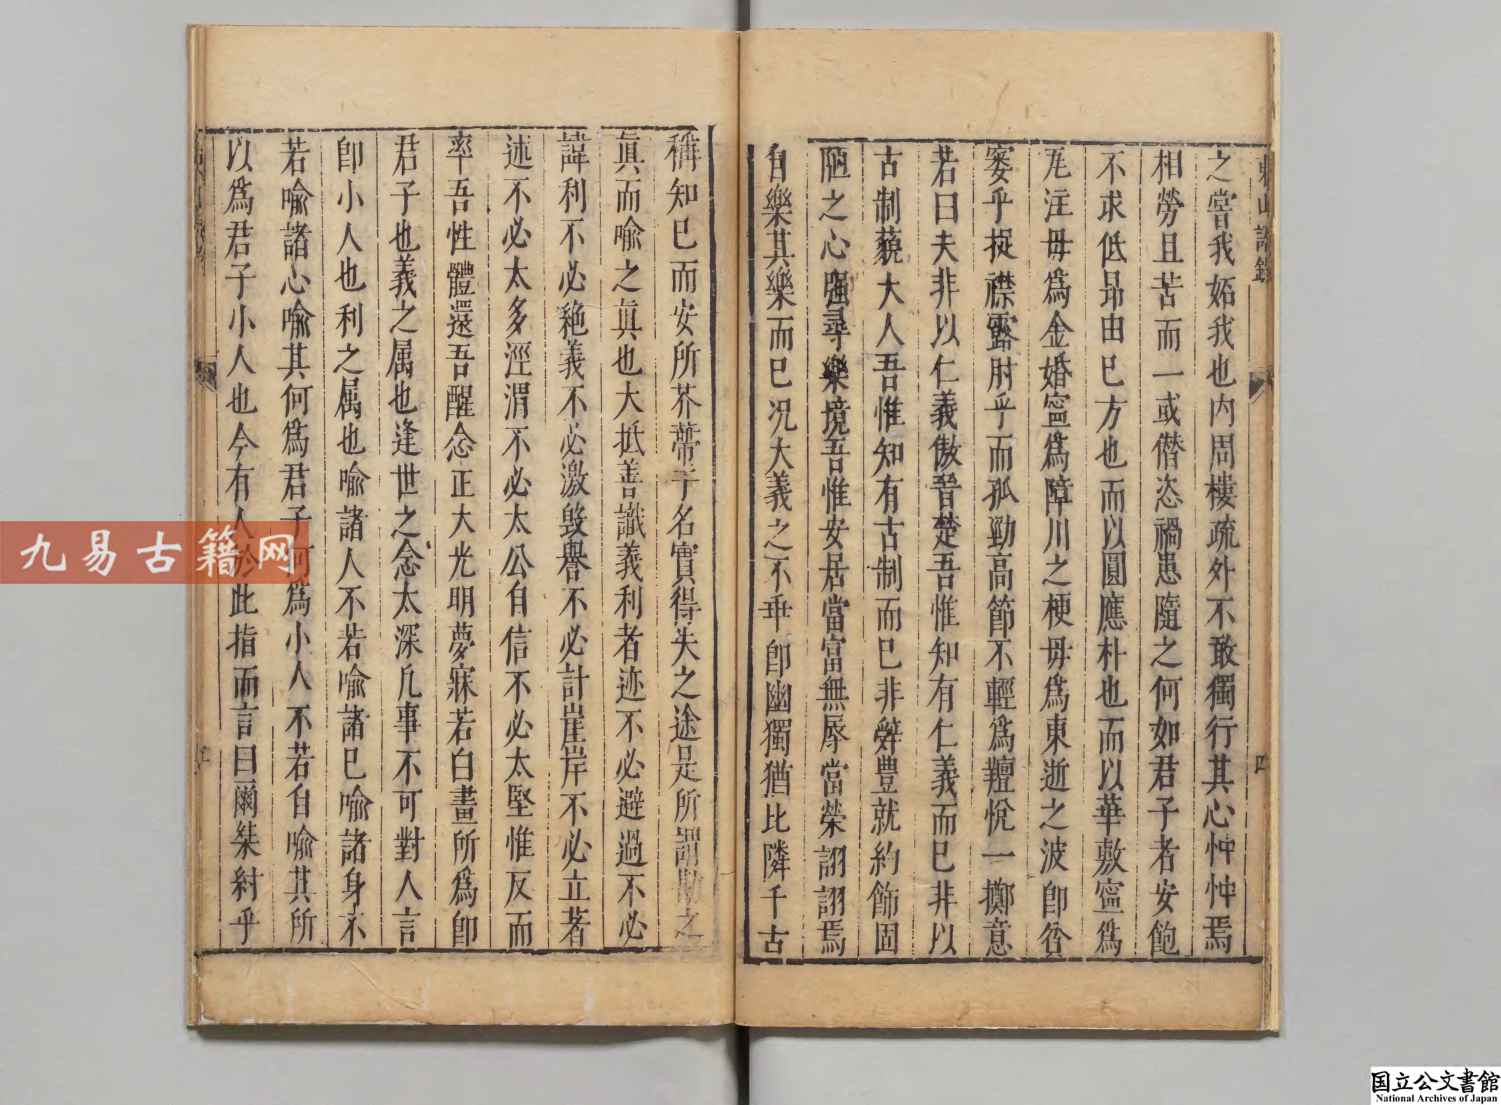 之嘗我妬我也内周樓疏外不敢獨行其心忡忡焉
相勞且苦而一或僭恣禍患隨之何如君子者安飽
不求低昂由已方也而以圓應朴也而以華敷寧爲
注毋爲金婚寧爲障川之梗毋爲東逝之波卽
窶乎捉襟露肘乎而孤勁高節不輕爲羶悅一擲意
若曰夫非以仁義傲晉楚吾惟知有仁義而已非以
古制藐大人吾惟知有古制而已非辭豊就約飾固
陋之心强尋樂境吾惟安居當富無辱當榮詡詡焉
自樂其樂而已况大義之不乖卽幽獨猶比隣千古
稱知已而安所芥蔕于名實得失之途是所謂之
眞而喩之眞也大抵善識義利者迹不必避過不必
諱利不必絶義不必激毁譽不必計崖岸不必立著
述不必太多涇渭不必太公自信不必太堅惟反而
率吾性體還吾醒念正大光明夢寐若白晝所爲卽
君子也義之属也逢世之念太深凢事不可對人言
卽小人也利之属也喩諸人不若喩諸已喩諸身不
若喩諸心喩其何爲君子何爲小人不若自喩其所
以爲君子小人也今有人於此指而言曰爾桀紂乎
四
九易古籍网
国立公文書館
National Archives of Japan